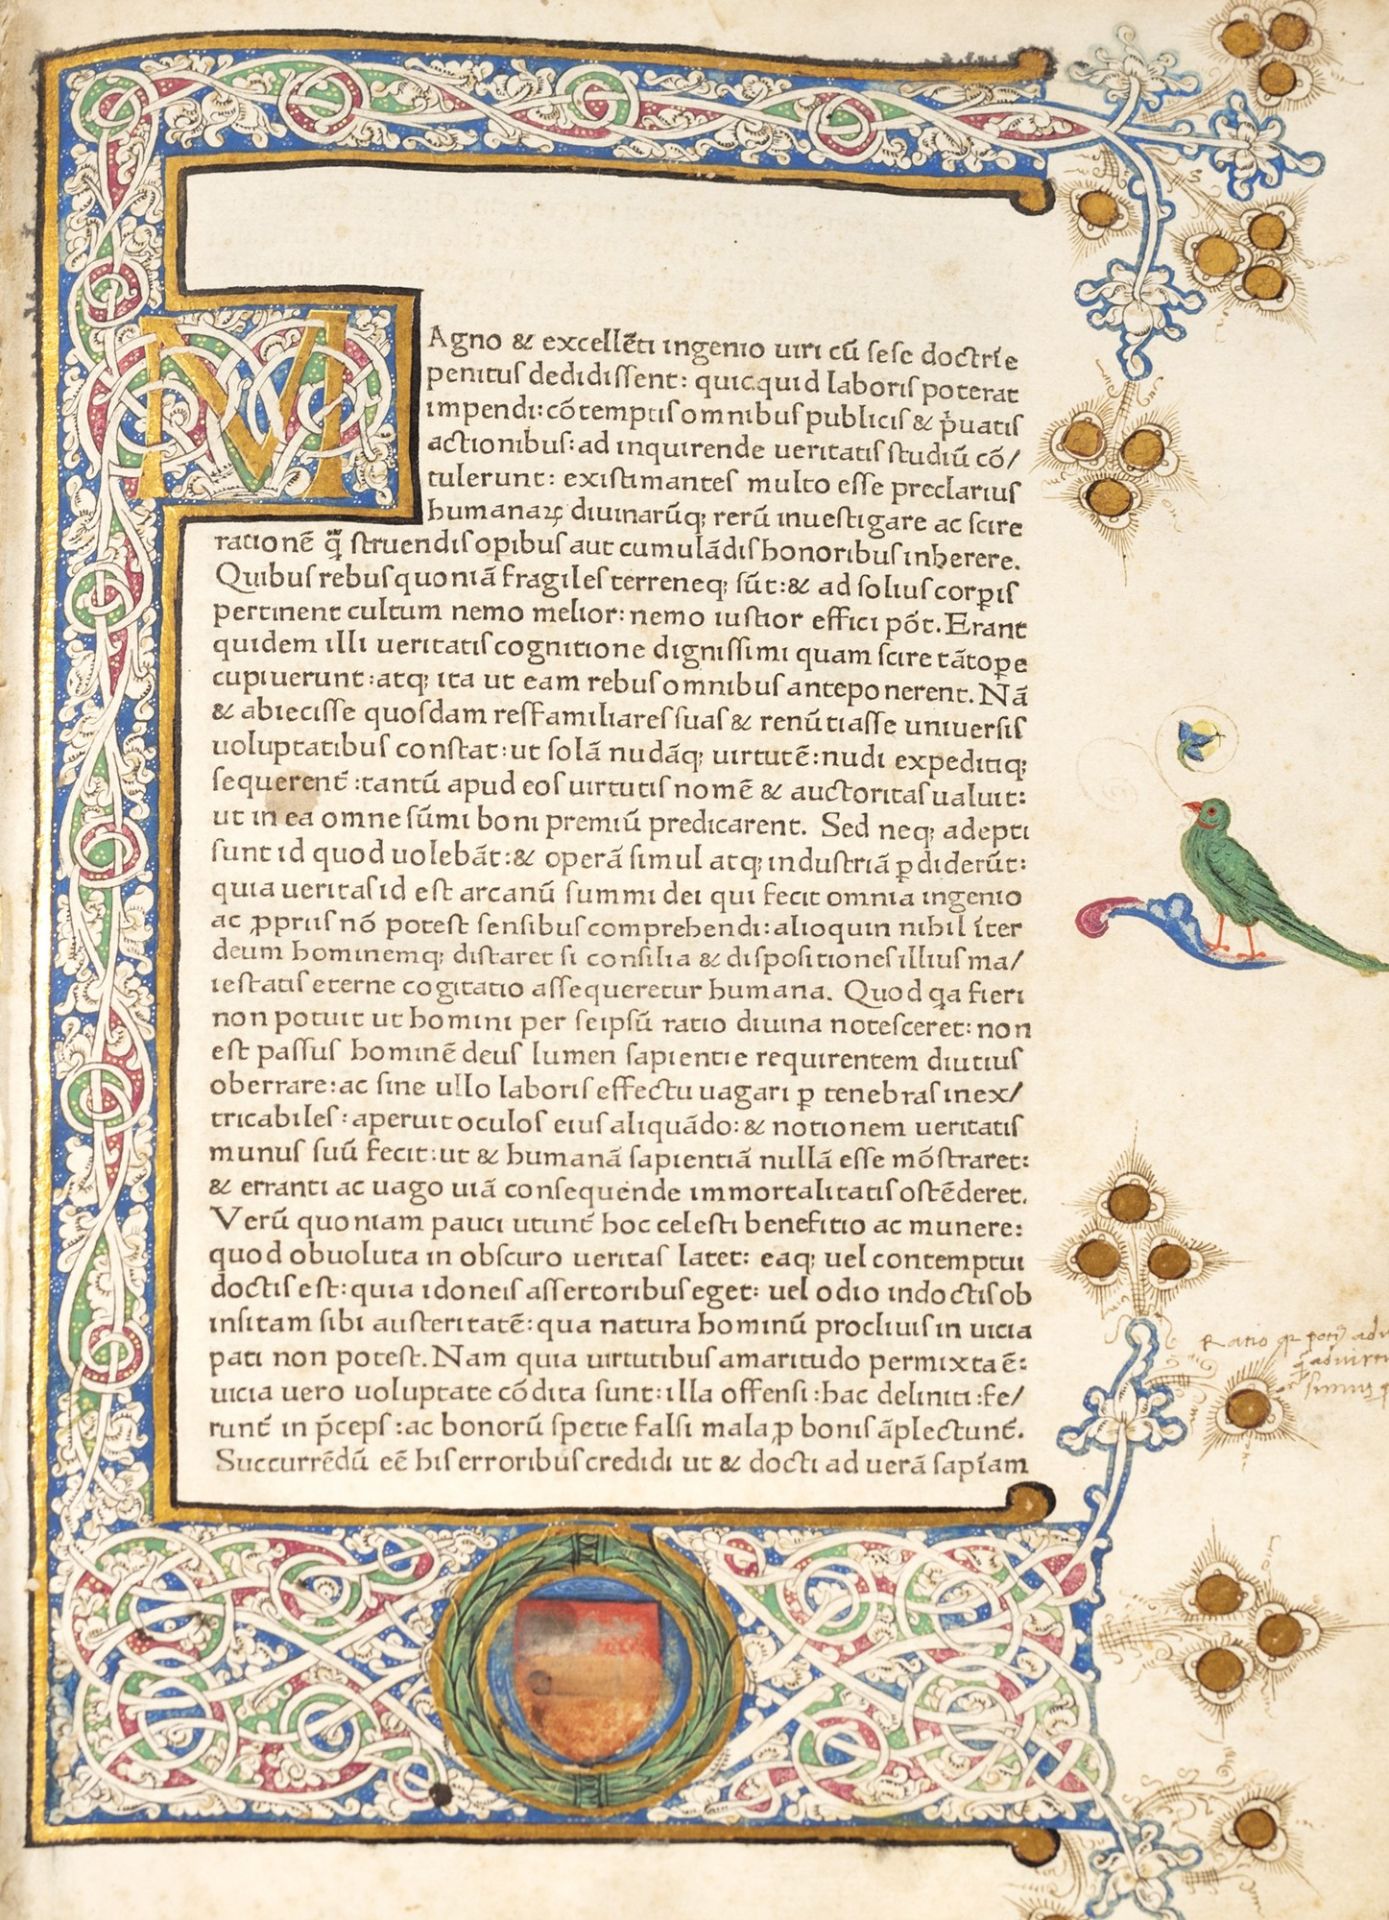 MAgno & excellēti ingenio uiri cū sese doctrīe
penitus dedidissent: quicquid laboris poterat
impendi: cōtemptis omnibus publicis & p̓uatis
actionibus: ad inquirende ueritatis studiū cō/
tulerunt: existimantes multo esse preclarius
humanaꝝ diuinarūq; rerū inuestigare ac scire
rationē q̄̈ struendis opibus aut cumulādis honoribus inherere.
Quibus rebus quoniā fragiles terreneq; sūt: & ad solius corꝑis
pertinent cultum nemo melior: nemo iustior effici pōt. Erant
quidem illi ueritatis cognitione dignissimi quam scire tātoꝑe
cupiuerunt: atq; ita ut eam rebus omnibus anteponerent. Nā
& abiecisse quosdam res familiares suas & renūtiasse uniuersis
uoluptatibus constat: ut solā nudāq; uirtutē: nudi expeditiq;
sequerent̄: tantū apud eos uirtutis nomē & auctoritas ualuit:
ut in ea omne sūmi boni premiū predicarent. Sed neq; adepti
sunt id quod uolebāt: & operā simul atq; industriā ꝑdiderūt:
quia ueritas id est arcanū summi dei qui fecit omnia ingenio
ac ꝓpriis nō potest sensibus comprehendi: alioquin nihil īter
deum hominemq; distaret si consilia & dispositiones illius ma/
iestatis eterne cogitatio assequeretur humana. Quod q̓a fieri
non potuit ut homini per seipsū ratio diuina notesceret: non
est passus hominē deus lumen sapientie requirentem diutius
oberrare: ac sine ullo laboris effectu uagari ꝑ tenebras inex/
tricabiles: aperuit oculos eius aliquādo: & notionem ueritatis
munus suū fecit: ut & humanā sapientiā nullā esse mōstraret:
& erranti ac uago uiā consequende immortalitatis ostēderet.
Verū quoniam pauci utunt̄ hoc celesti benefitio ac munere:
quod obuoluta in obscuro ueritas latet: eaq; uel contemptui
doctis est: quia idoneis assertoribus eget: uel odio indoctis ob
insitam sibi austeritatē: qua natura hominū procliuis in uicia
pati non potest. Nam quia uirtutibus amaritudo permixta ē:
uicia uero uoluptate cōdita sunt: illa offensi: hac deliniti: fe/
runt̄ in p̄ceps: ac bonorū spetie falsi mala ꝓ bonis āplectunt̄.
Succurrēdū eē his erroribus credidi ut & docti ad uerā sapīam
Ratio